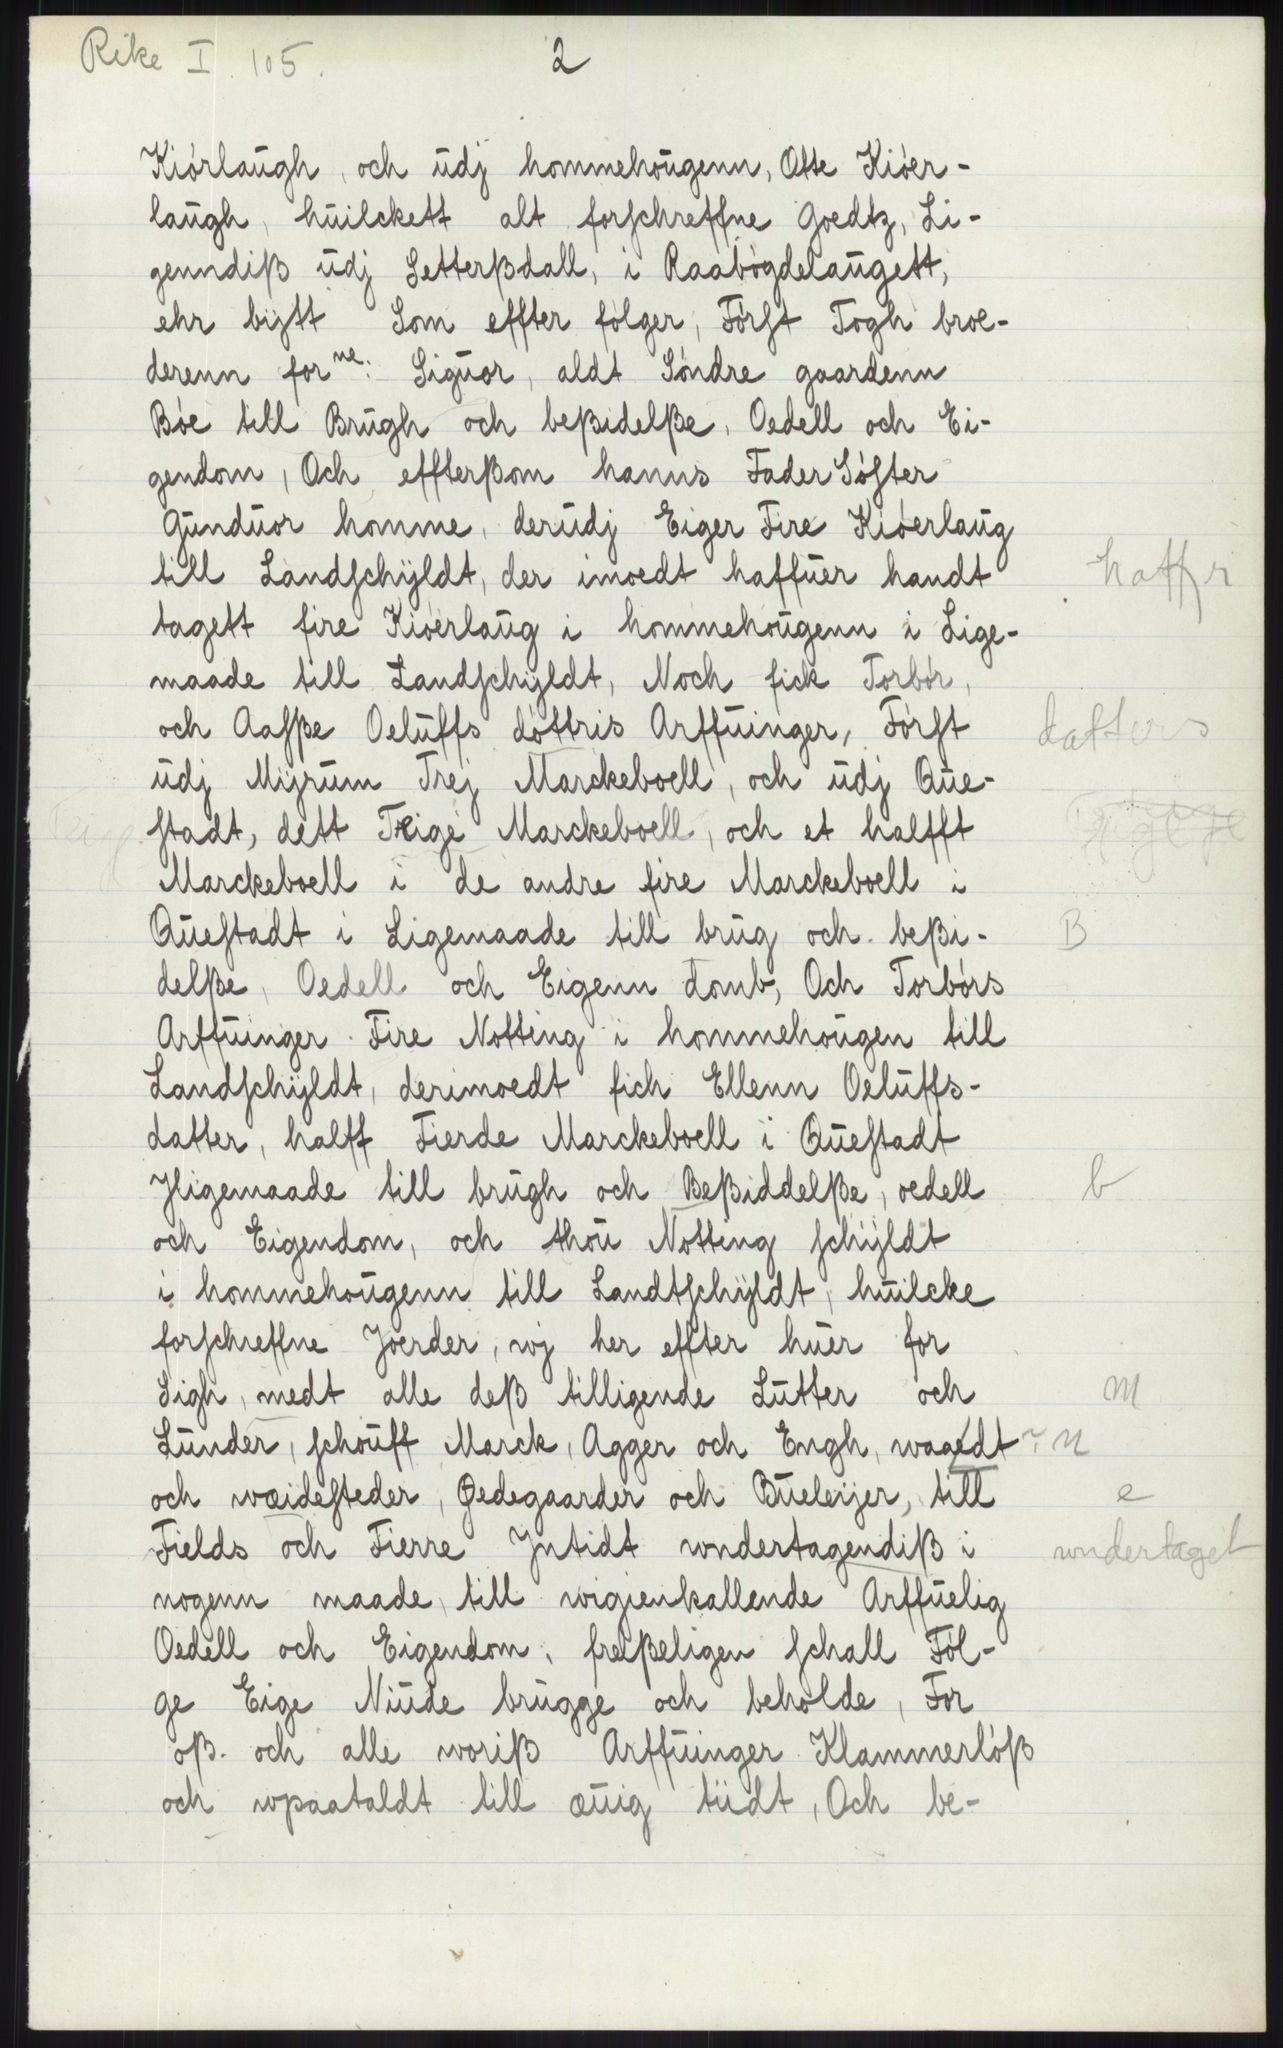 Rike I. 105.
2
Kiórlaugh, och udj hommehougenn, Otte Kióer-
laugh, huilckett alt forschreffne Goedtz, Li-
genndiß udj Setterßdall, i Raabógdelaugett,
ehr bytt Som effter fólger, Fórst Togh broe-
derenn forne: Siguor, aldt Sóndre gaardenn
Bóe till Brugh och beßidelße, Oedell och Ei-
gendom, Och effterßom hanns Fader Sóster
Gunduor homme, derudj Eiger Fire Kióerlaug
till Landschÿldt, der imoedt haffuer handt haffr
tagett fire Kióerlaug i hommehougenn i Lige-
maade till Landschyldt, Noch fick Torbór,
och Aasße Oeluffs dóttris Arffuinger, Fórst datters
udj Myrum Trej Marckeboell, och udj Que-
stadt, dett Treigé Marckeboell, och et halfft
Marckeboell i de andre fire Marckeboell i
Questadt i Ligemaade till brug och beßi- B
delße, Oedell och Eigenn domb, Och Torbórs
Arffuinger Fire Notting i hommehougen till
Landschyldt, derimoedt fich Ellenn Oeluffs-
datter, halff Fierde Marckeboell i Questadt
Jligemaade till brugh och Beßiddelße, oedell b
och Eigendom, och thou Notting schÿldt
i hommehougenn till Landtschÿldt, huilcke
forschreffne Joerder, wj her effter huer for
Sigh, medt alle deß tilligende Lutter och m
Lunder, schouff Marck, Agger och Engh, waadt ? n
och wæidesteder, Ødegaarder och Bueleijer, till e
Fields och Fierre Jntidt wndertagendiß i wndertaget
nogenn maade, till wigienkallende Arffuelig
Oedell och Eigendom, freßeligen schall Föl-
ge Eige Niude brugge och beholde, For
oß och alle woriß Arffuinger Klammerlóß
och wpaataldt till æuig tiidt, Och be-